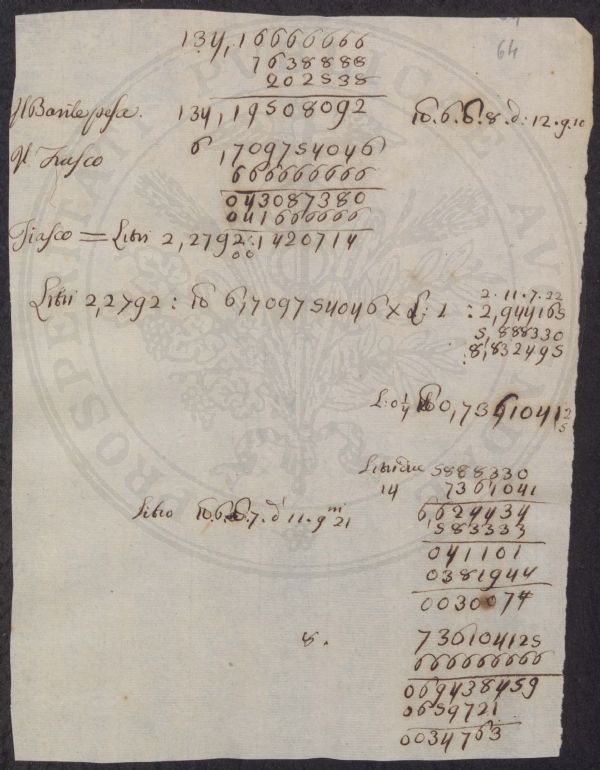 64
134,16666666
7638888
202538
Il Barile pesa. 134,19508092 lb. 6. 6. 8. d: 12. g. 10
Il Fiasco 6,709754046
666666666
043087380
041666666
Fiasco = Libri 2,2792:1420714
00
2. 11. 7. 22
Libri 2,2792 : lb 6,709754046 × L: 1 : 2,944165
5,888330
8,832495
L: 0 1/4 lb 0,73610412
5
Libri due 5888330
14 7361041
6,6249434
583333
041101
0381944
0030074
Libro lb. 6. 6. 7. d 11. g 21
8. 736104125
666666666
069438459
0659721
0034763
PROSPERITATI PUBLICAE